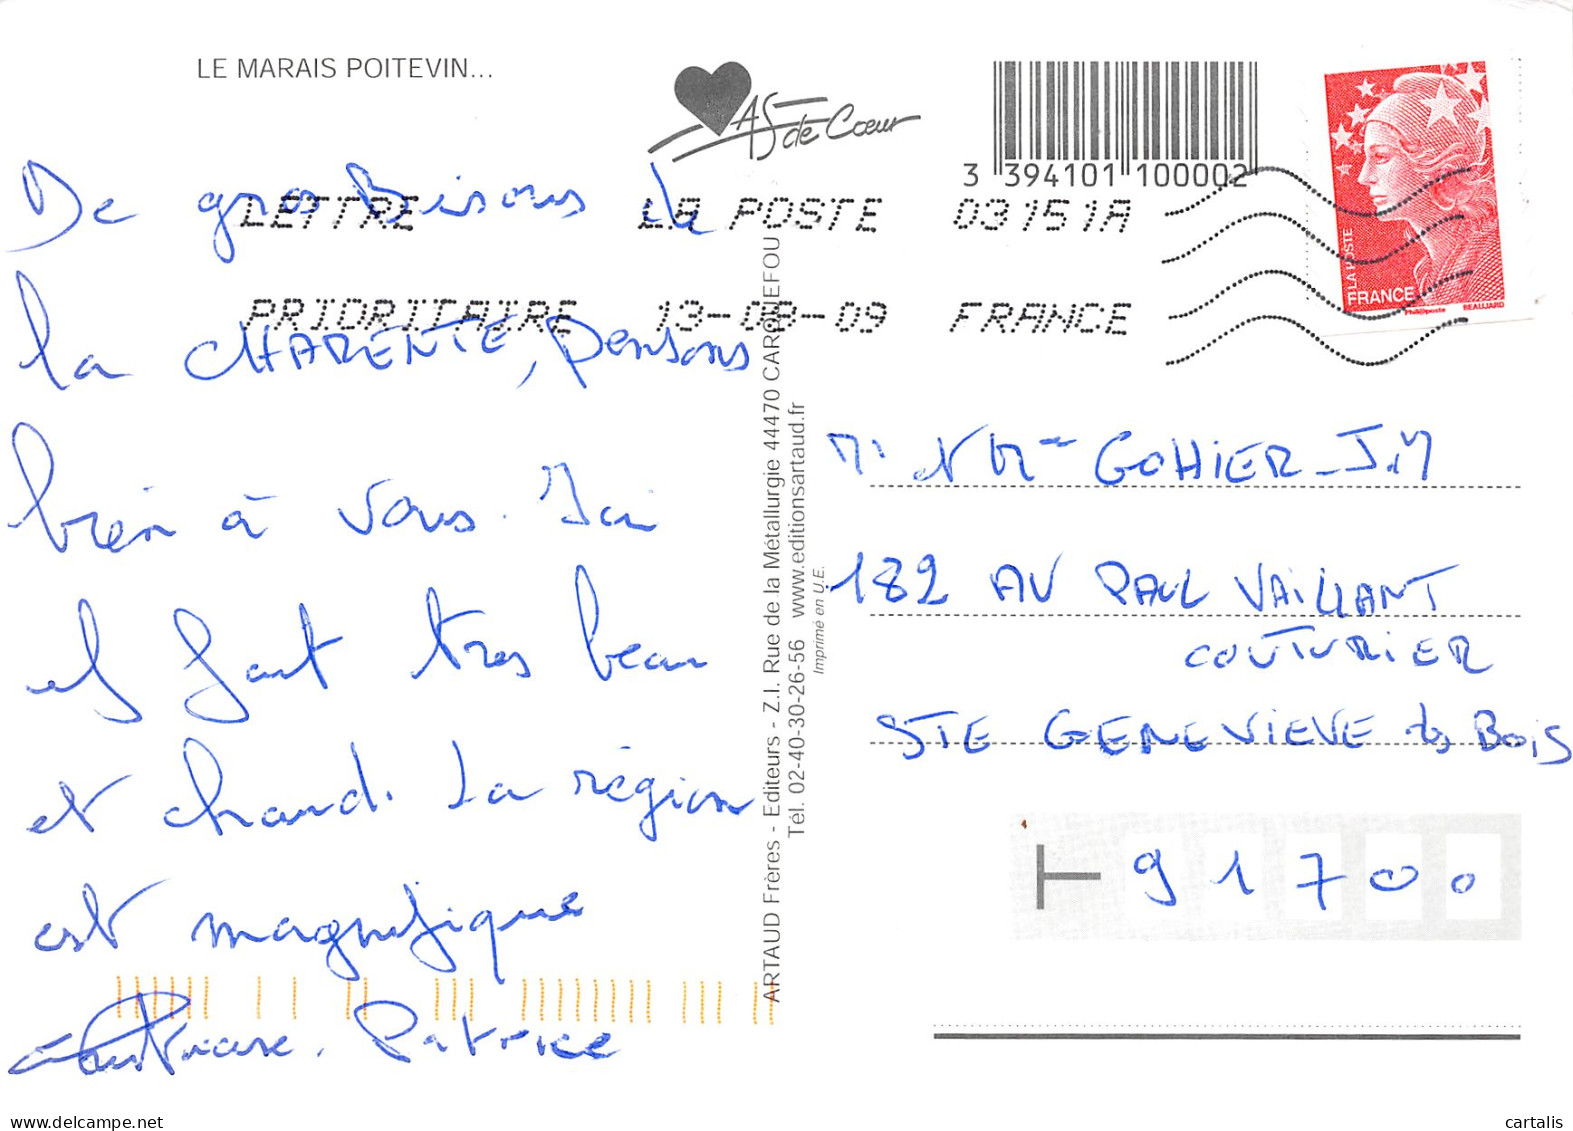 LE MARAIS POITEVIN...
AS de Cœur
3 394101 100002
LETTRE LA POSTE 03151A
PRIORITAIRE 13-08-09 FRANCE
LA POSTE
FRANCE
Phil@poste
BEAUJARD
De gros Bisous de
la CHARENTE, Pensons
bien à vous. Ici
il fait très beau
et chaud. La région
est magnifique
Patrice
ARTAUD Frères - Editeurs - Z.I. Rue de la Métallurgie 44470 CARQUEFOU
Tél. 02-40-30-26-56 www.editionsartaud.fr
Imprimé en U.E.
GOHIER J.M
182 AV PAUL VAILLANT
COUTURIER
STE GENEVIEVE des BOIS
91700
cartalis